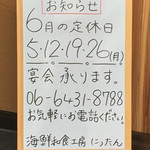 お知らせ
6月の定休日
5・12・19・26(月)
宴会承ります。
06-6431-8788
お気軽にお電話ください。
海鮮和食工房 にったん